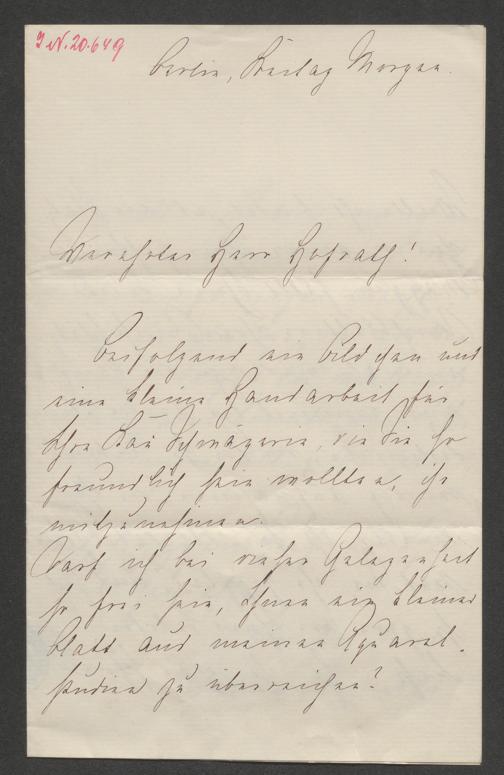 I.N. 20.649
Berlin, Freitag Morgen.
Verehrter Herr Hofrath!
Beifolgend ein Bildchen und
eine kleine Handarbeit für
Ihre Schwägerin, die Sie so
freundlich sein wollten, ihr
mitzunehmen.
Darf ich bei dieser Gelegenheit
so frei sein, Ihnen ein kleines
Blatt aus meinen Aquarel-
studien zu überreichen?